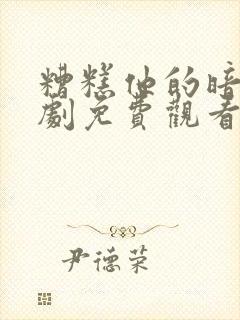 糟糕他的暗
劇免費觀看
尹德荣